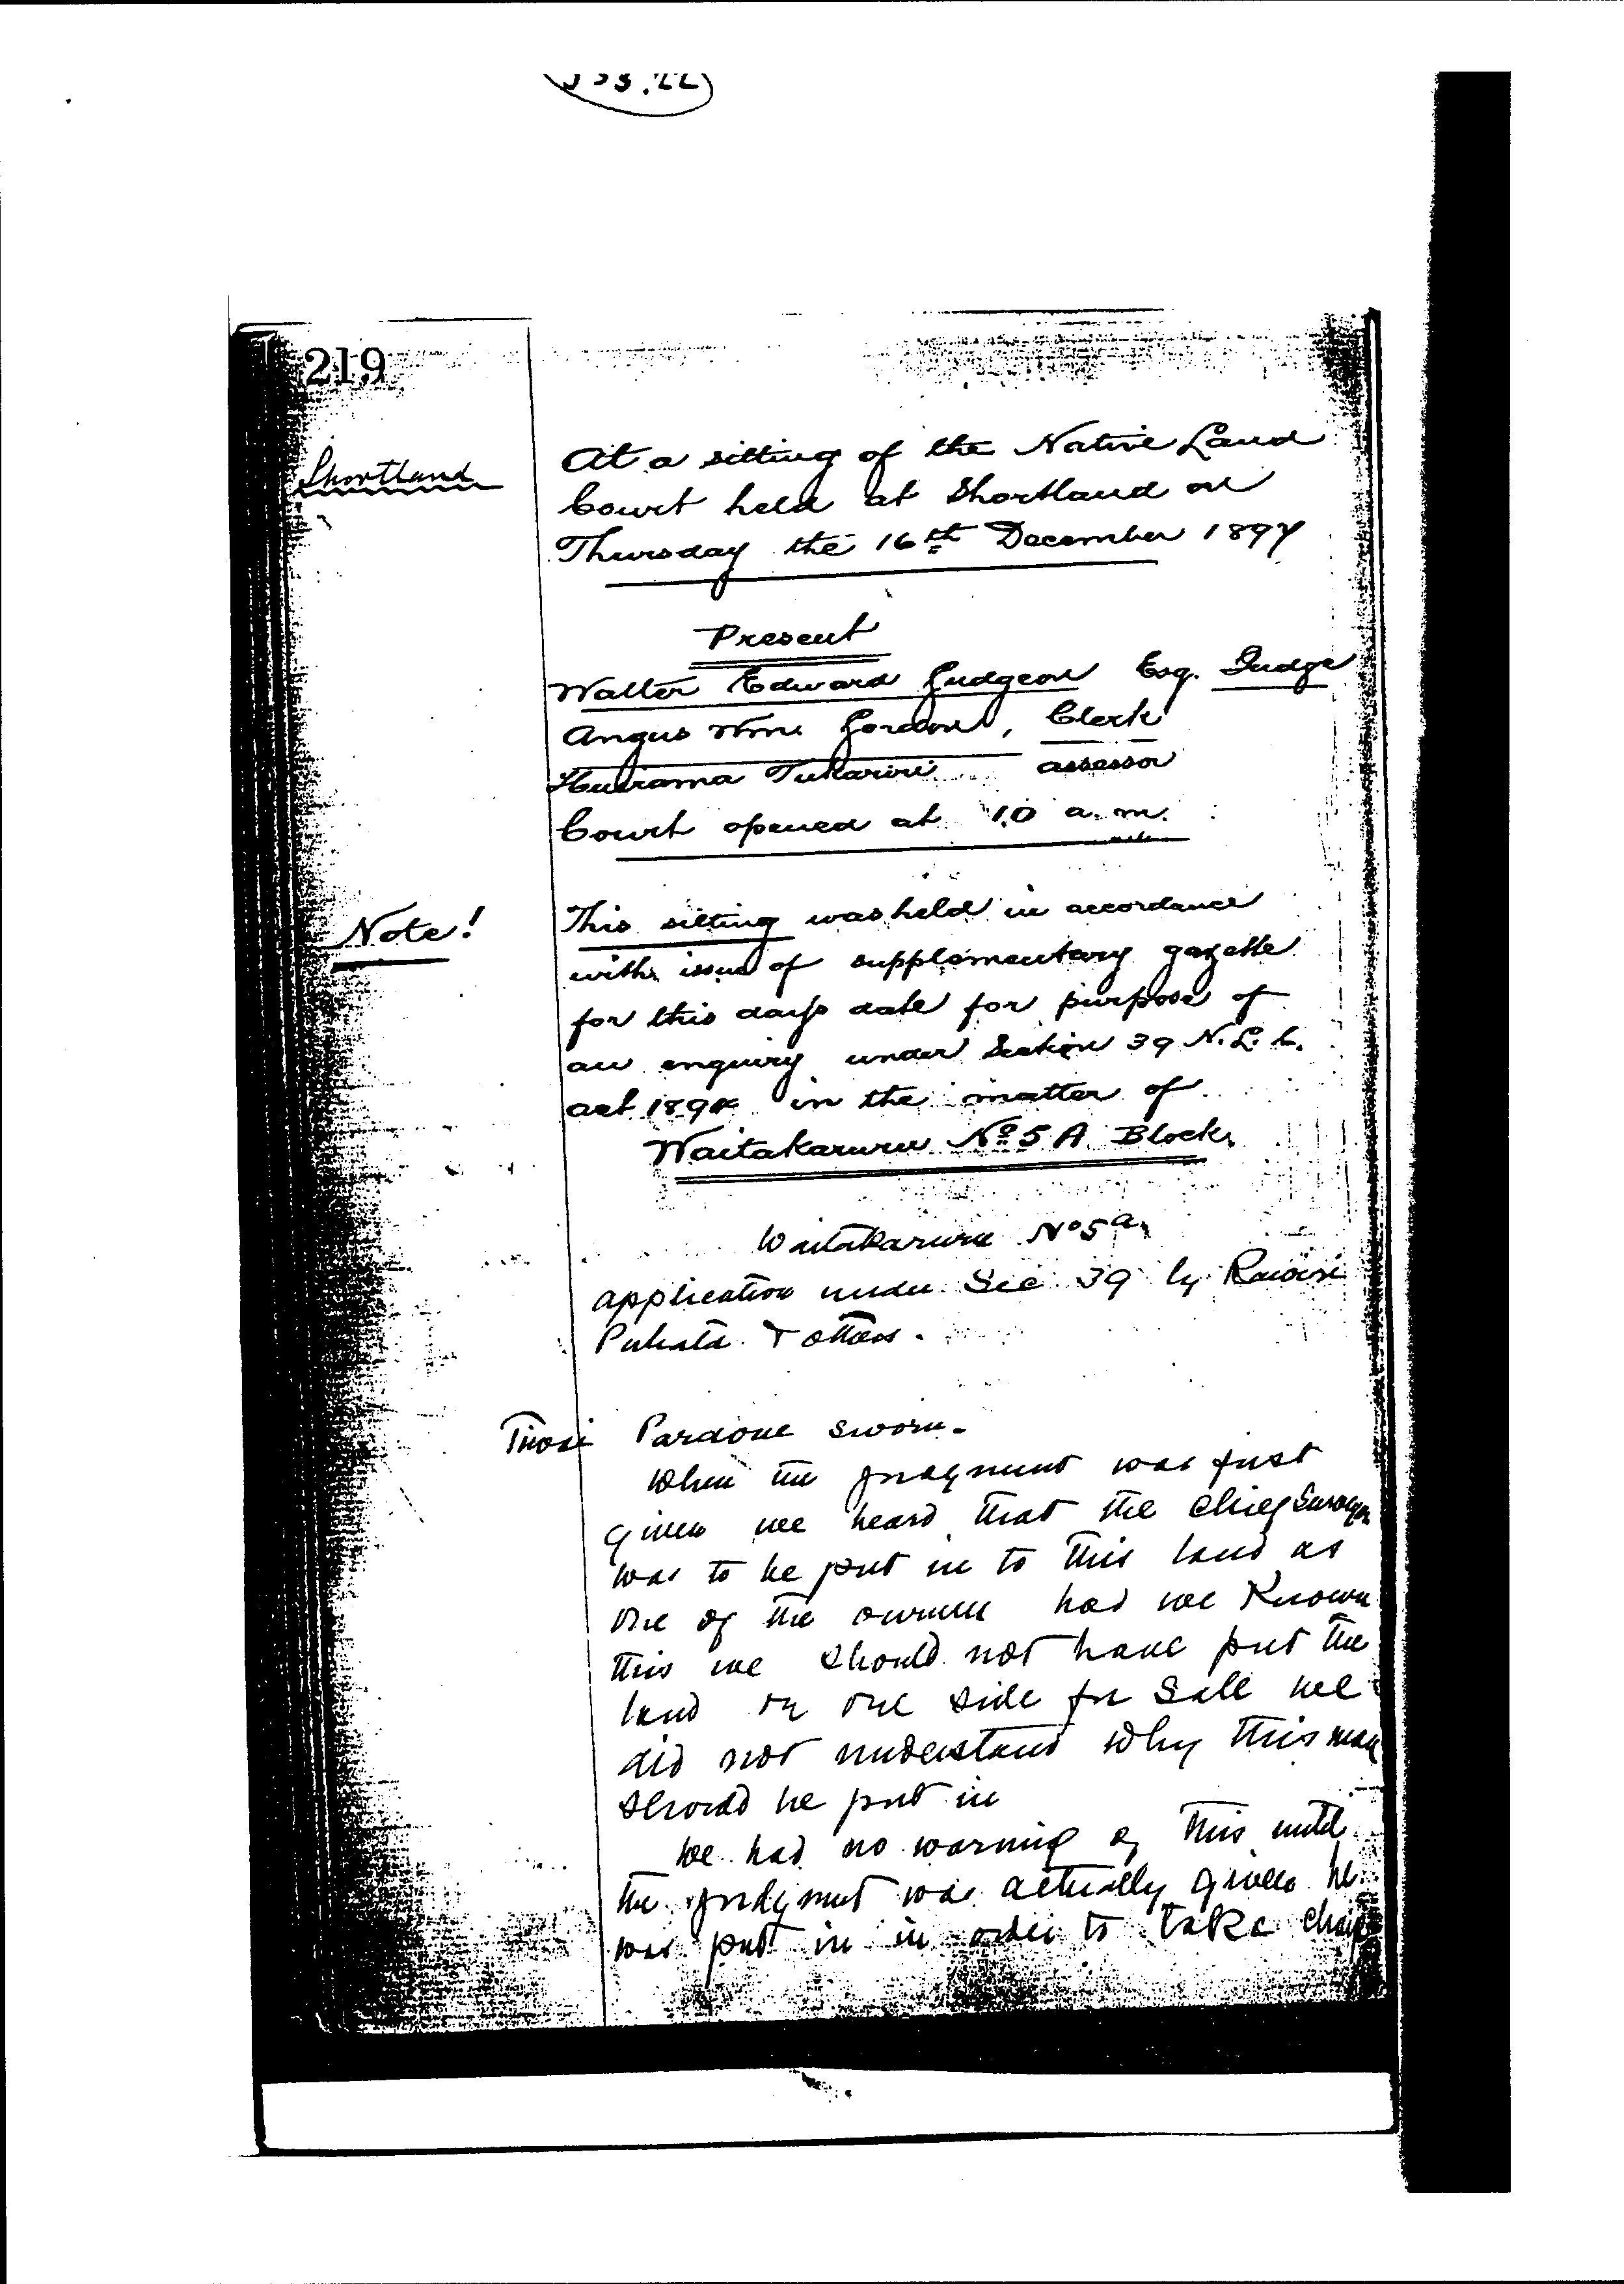 219
Shortland
At a sitting of the Native Land
Court held at Shortland on
Thursday the 16th December 1897
Present
Walter Edward Gudgeon Esq. Judge
Angus Wm. Gordon, Clerk
Tukariri assessor
Court opened at 10 a.m.
Note!
This sitting was held in accordance
with issue of supplementary gazette
for this days date for purpose of
an enquiry under Section 39 N.L.C.
act 1894 in the matter of
Waitakaruru No 5 A Block
Waitakaruru No 5a
application under Sec 39 by
Puhata & others.
Pardone sworn.
When the judgment was first
given we heard that the chief Surveyor
was to be put in to this land as
one of the owners had we Known
this we should not have put the
land on one side for Sale we
did not understand why this man
should be put in
We had no warning of this until
the judgment was actually given he
was put in in order to take